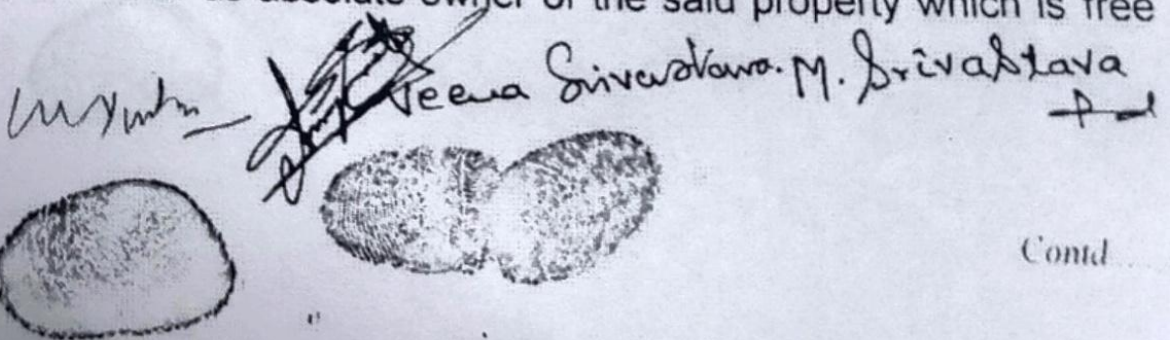 absolute owner of the said property which is free
Veena Srivastava. M. Srivastava
Contd...